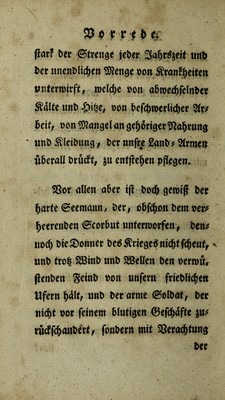 Vorrede.
ſtark der Strenge jeder Jahrszeit und
der unendlichen Menge von Krankheiten
unterwirft, welche von abwechſelnder
Kälte und Hitze, von beſchwerlicher Ar-
beit, von Mangel an gehöriger Nahrung
und Kleidung, der unſre Land-Armen
überall drückt, zu entſtehen pflegen.
Vor allen aber iſt doch gewiß der
harte Seemann, der, obſchon dem ver-
heerenden Scorbut unterworfen, den-
noch die Donner des Krieges nicht ſcheut,
und trotz Wind und Wellen den verwü-
ſtenden Feind von unſern friedlichen
Ufern hält, und der arme Soldat, der
nicht vor ſeinem blutigen Geſchäfte zu-
rückſchaudert, ſondern mit Verachtung
der